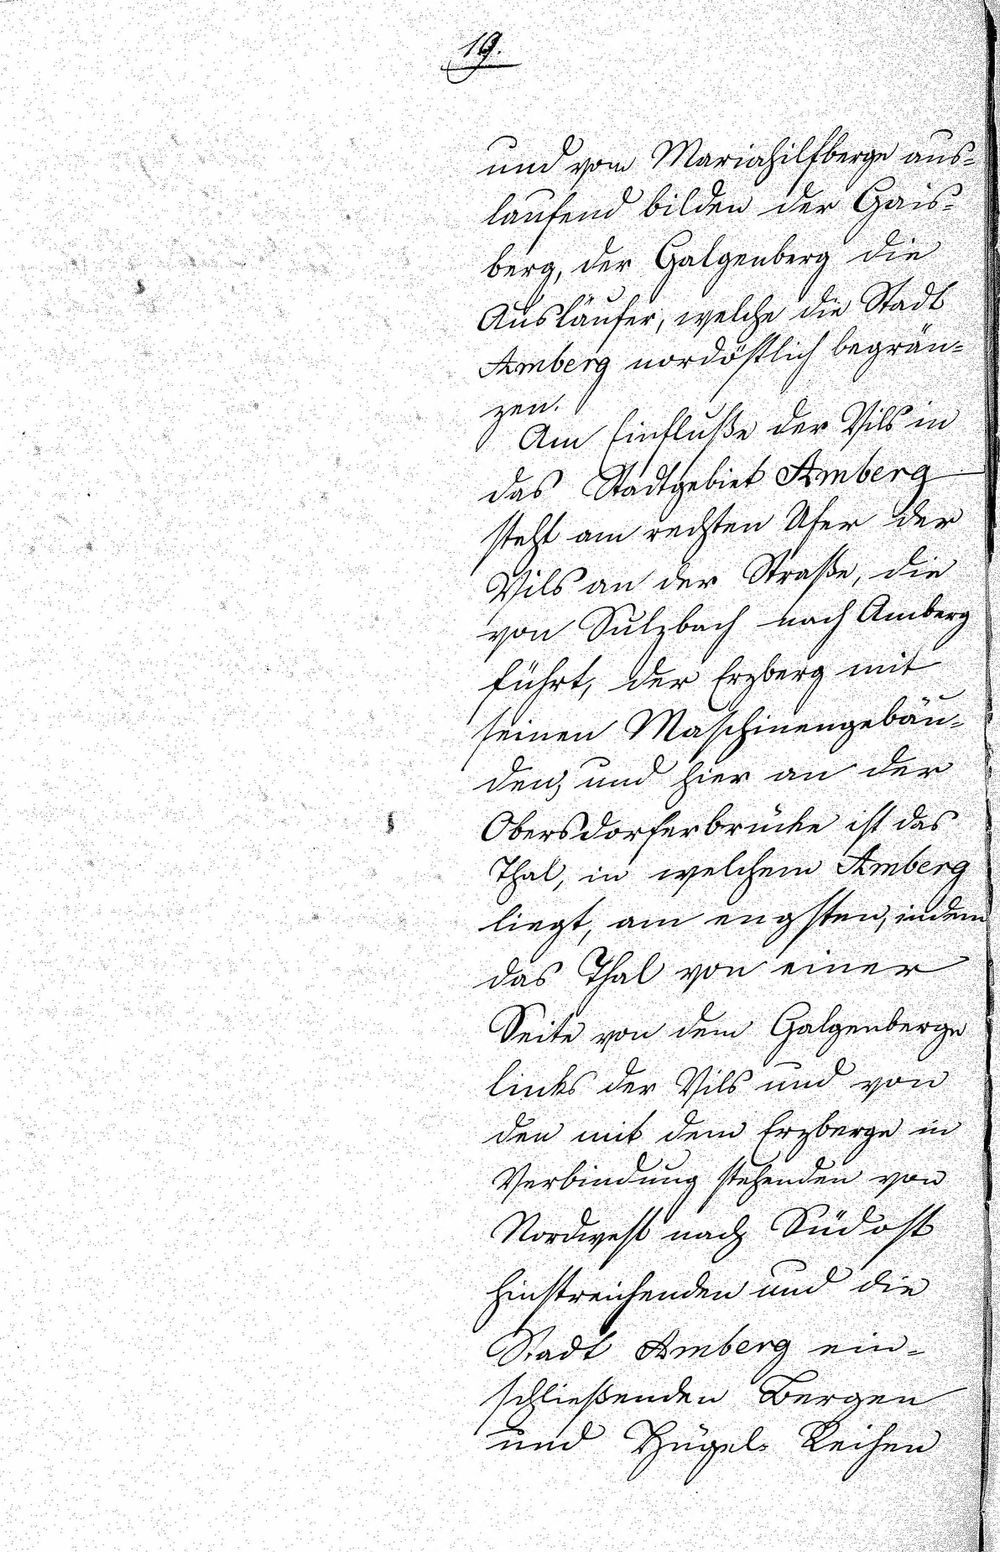 19.
und vom Mariahilfberge aus-
laufend bilden der Gais-
berg, der Galgenberg die
Ausläufer, welche die Stadt
Amberg nordöstlich begrän-
zen.
Am Einfluße der Vils in
das Stadtgebiet Amberg
steht am rechten Ufer der
Vils an der Straße, die
von Sulzbach nach Amberg
führt, der Erzberg mit
seinen Maschinengebäu-
den, und hier an der
Obersdorferbrücke ist das
Thal, in welchem Amberg
liegt, am engsten, indem
das Thal von einer
Seite von dem Galgenberge
links der Vils und von
den mit dem Erzberge in
Verbindung stehenden von
Nordwest nach Südost
hinstreichenden und die
Stadt Amberg ein-
schließenden Bergen
und Hügel- Reihen